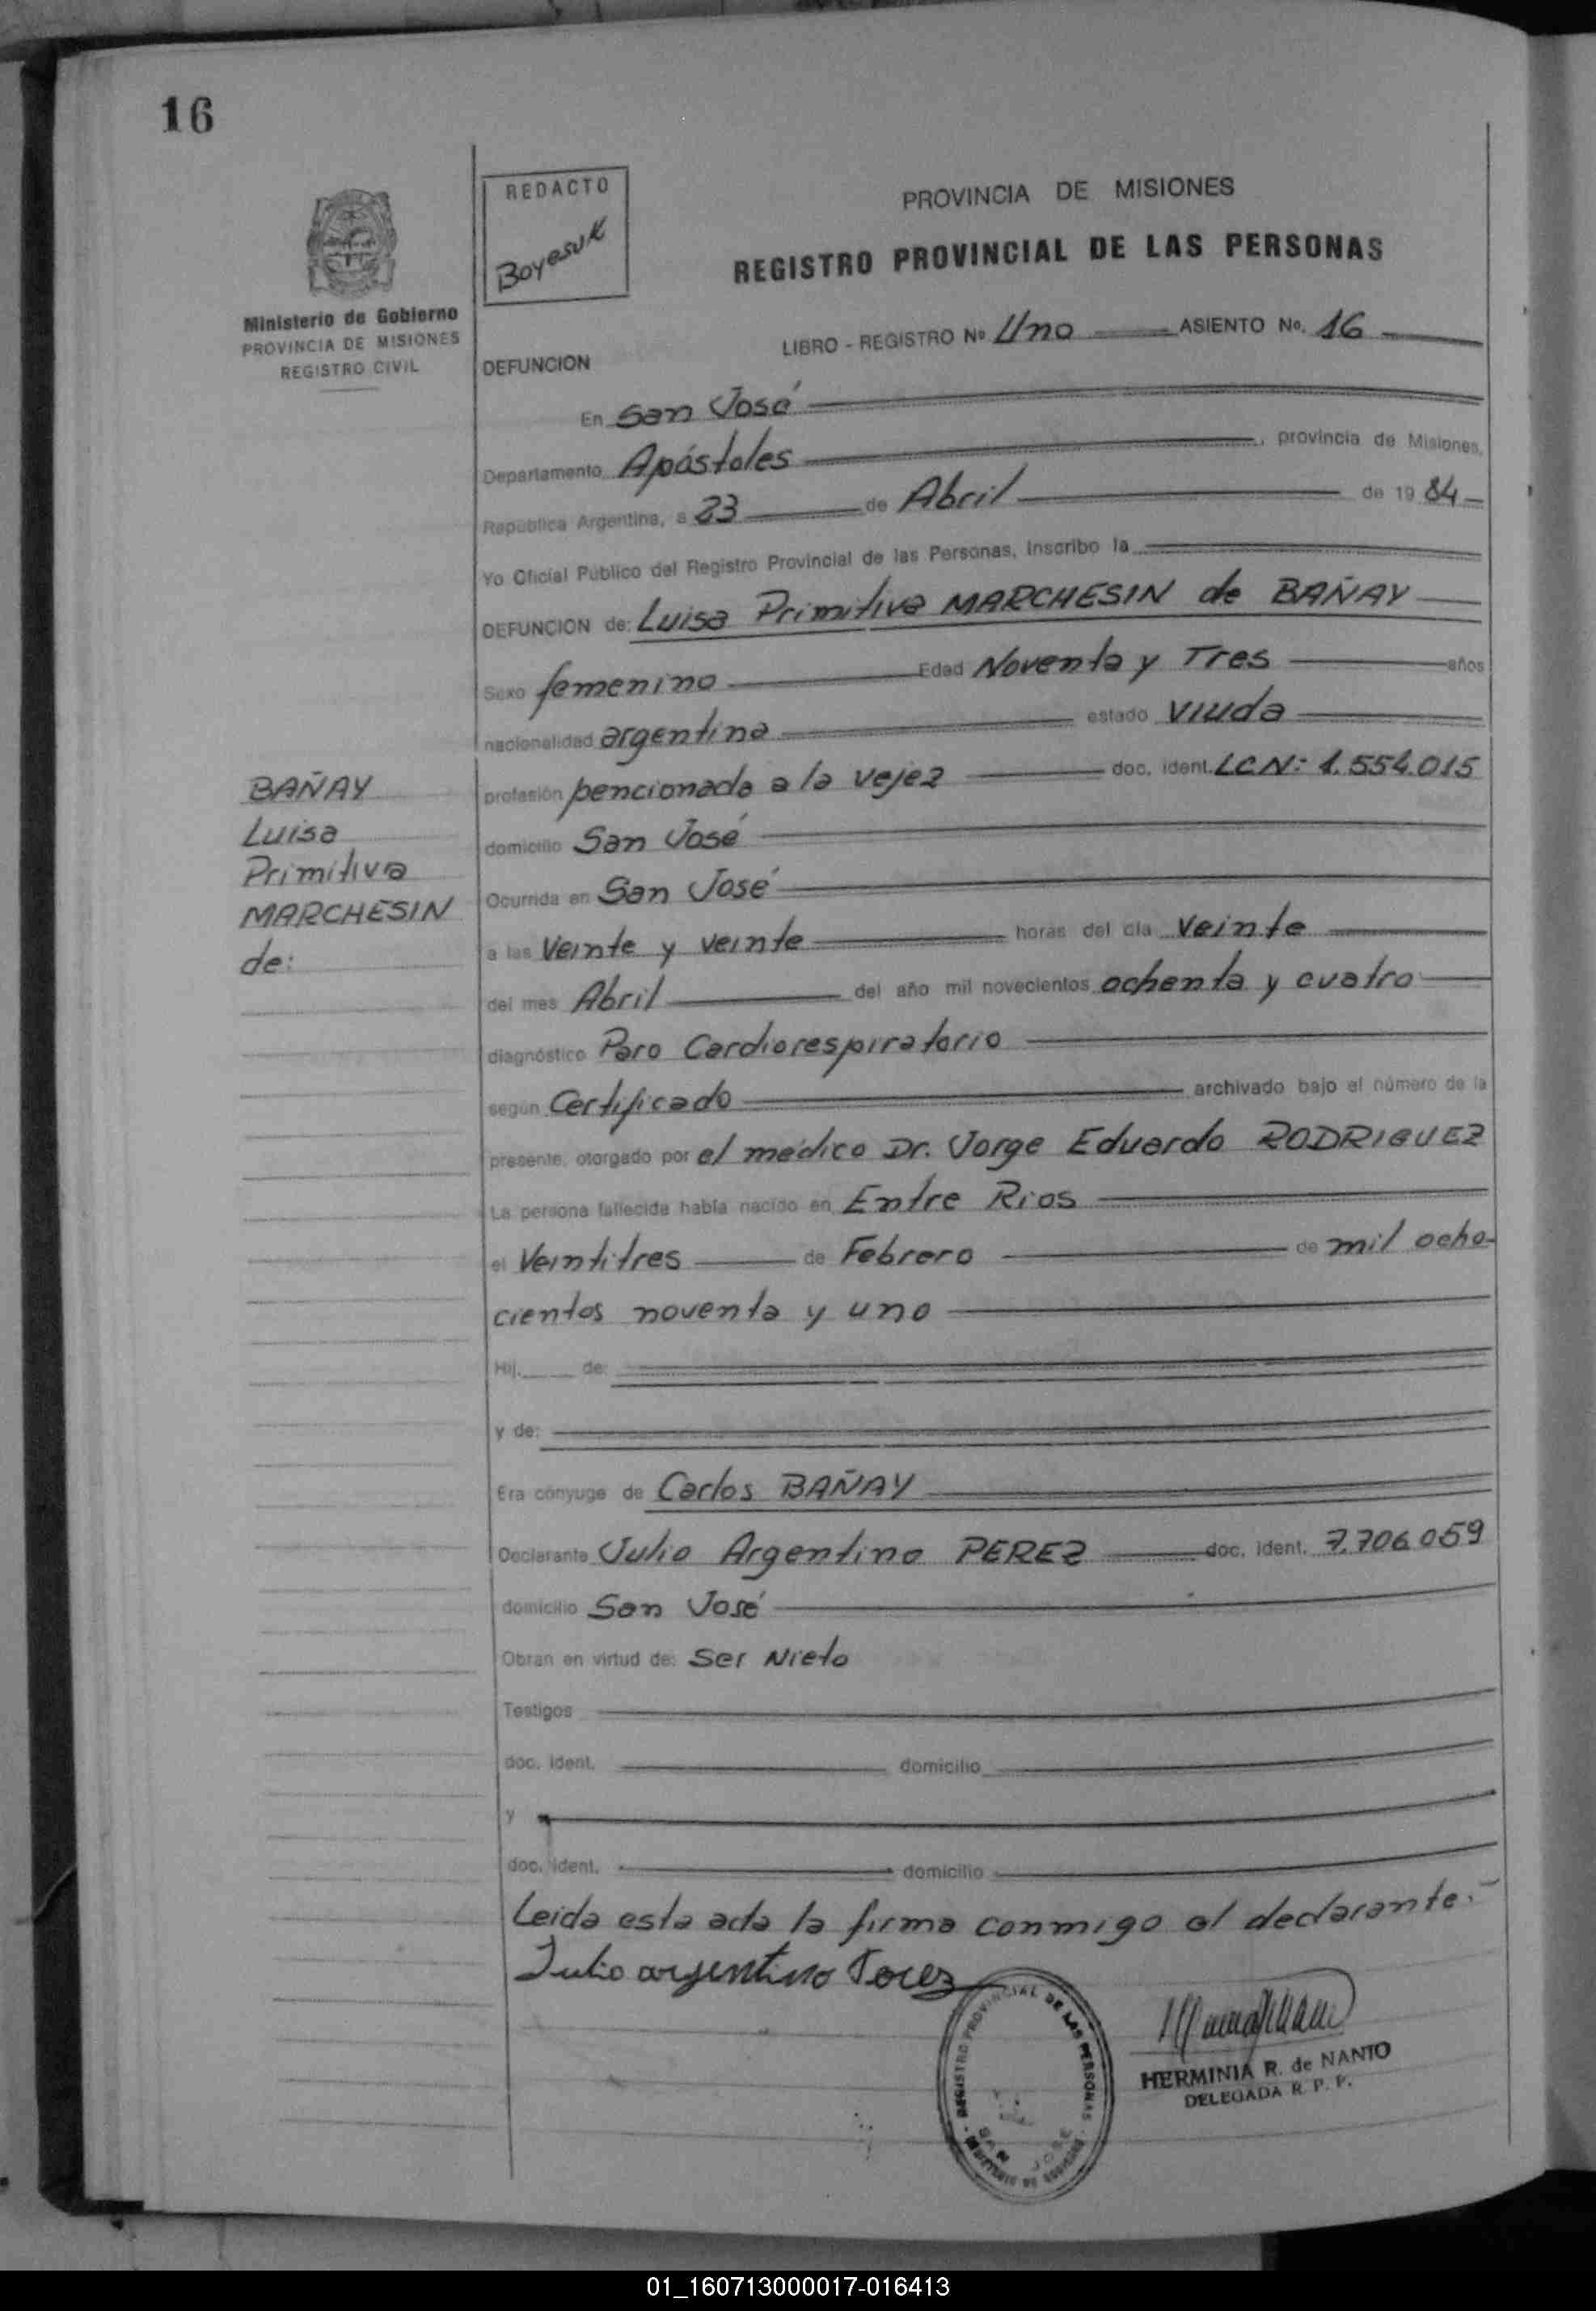 16
REDACTO
Boyesuk
Ministerio de Gobierno
PROVINCIA DE MISIONES
REGISTRO CIVIL
PROVINCIA DE MISIONES
REGISTRO PROVINCIAL DE LAS PERSONAS
LIBRO - REGISTRO Nº Uno ASIENTO No. 16
DEFUNCION
En San José
Departamento Apóstoles, provincia de Misiones,
República Argentina, a 23 de Abril de 1984
Yo Oficial Público del Registro Provincial de las Personas, inscribo la
DEFUNCION de: Luisa Primitiva MARCHESIN de BAÑAY
Sexo femenino Edad Noventa y Tres años
nacionalidad argentina estado Viuda
profesión pencionada a la vejez doc. ident. LCN: 1.554.015
domicilio San José
Ocurrida en San José
a las Veinte y veinte horas del día veinte
del mes Abril del año mil novecientos ochenta y cuatro
diagnóstico Paro Cardiorespiratorio
según Certificado archivado bajo el número de la
presente, otorgado por el médico Dr. Jorge Eduardo RODRIGUEZ
La persona fallecida había nacido en Entre Rios
el Veintitres de Febrero de mil ocho-
cientos noventa y uno
Hij. de:
y de:
Era cónyuge de Carlos BAÑAY
Declarante Julio Argentino PEREZ doc. ident. 7.706.059
domicilio San José
Obran en virtud de: Ser Nieto
Testigos
doc. ident. domicilio
y
doc. ident. domicilio
Leida esta acta la firma conmigo el declarante.-
Julio argentino Perez
BAÑAY
Luisa
Primitiva
MARCHESIN
de:
REGISTRO PROVINCIAL DE LAS PERSONAS
SAN JOSE
MINISTERIO DE GOBIERNO
HERMINIA R. de NANTO
DELEGADA R. P. P.
01_160713000017-016413